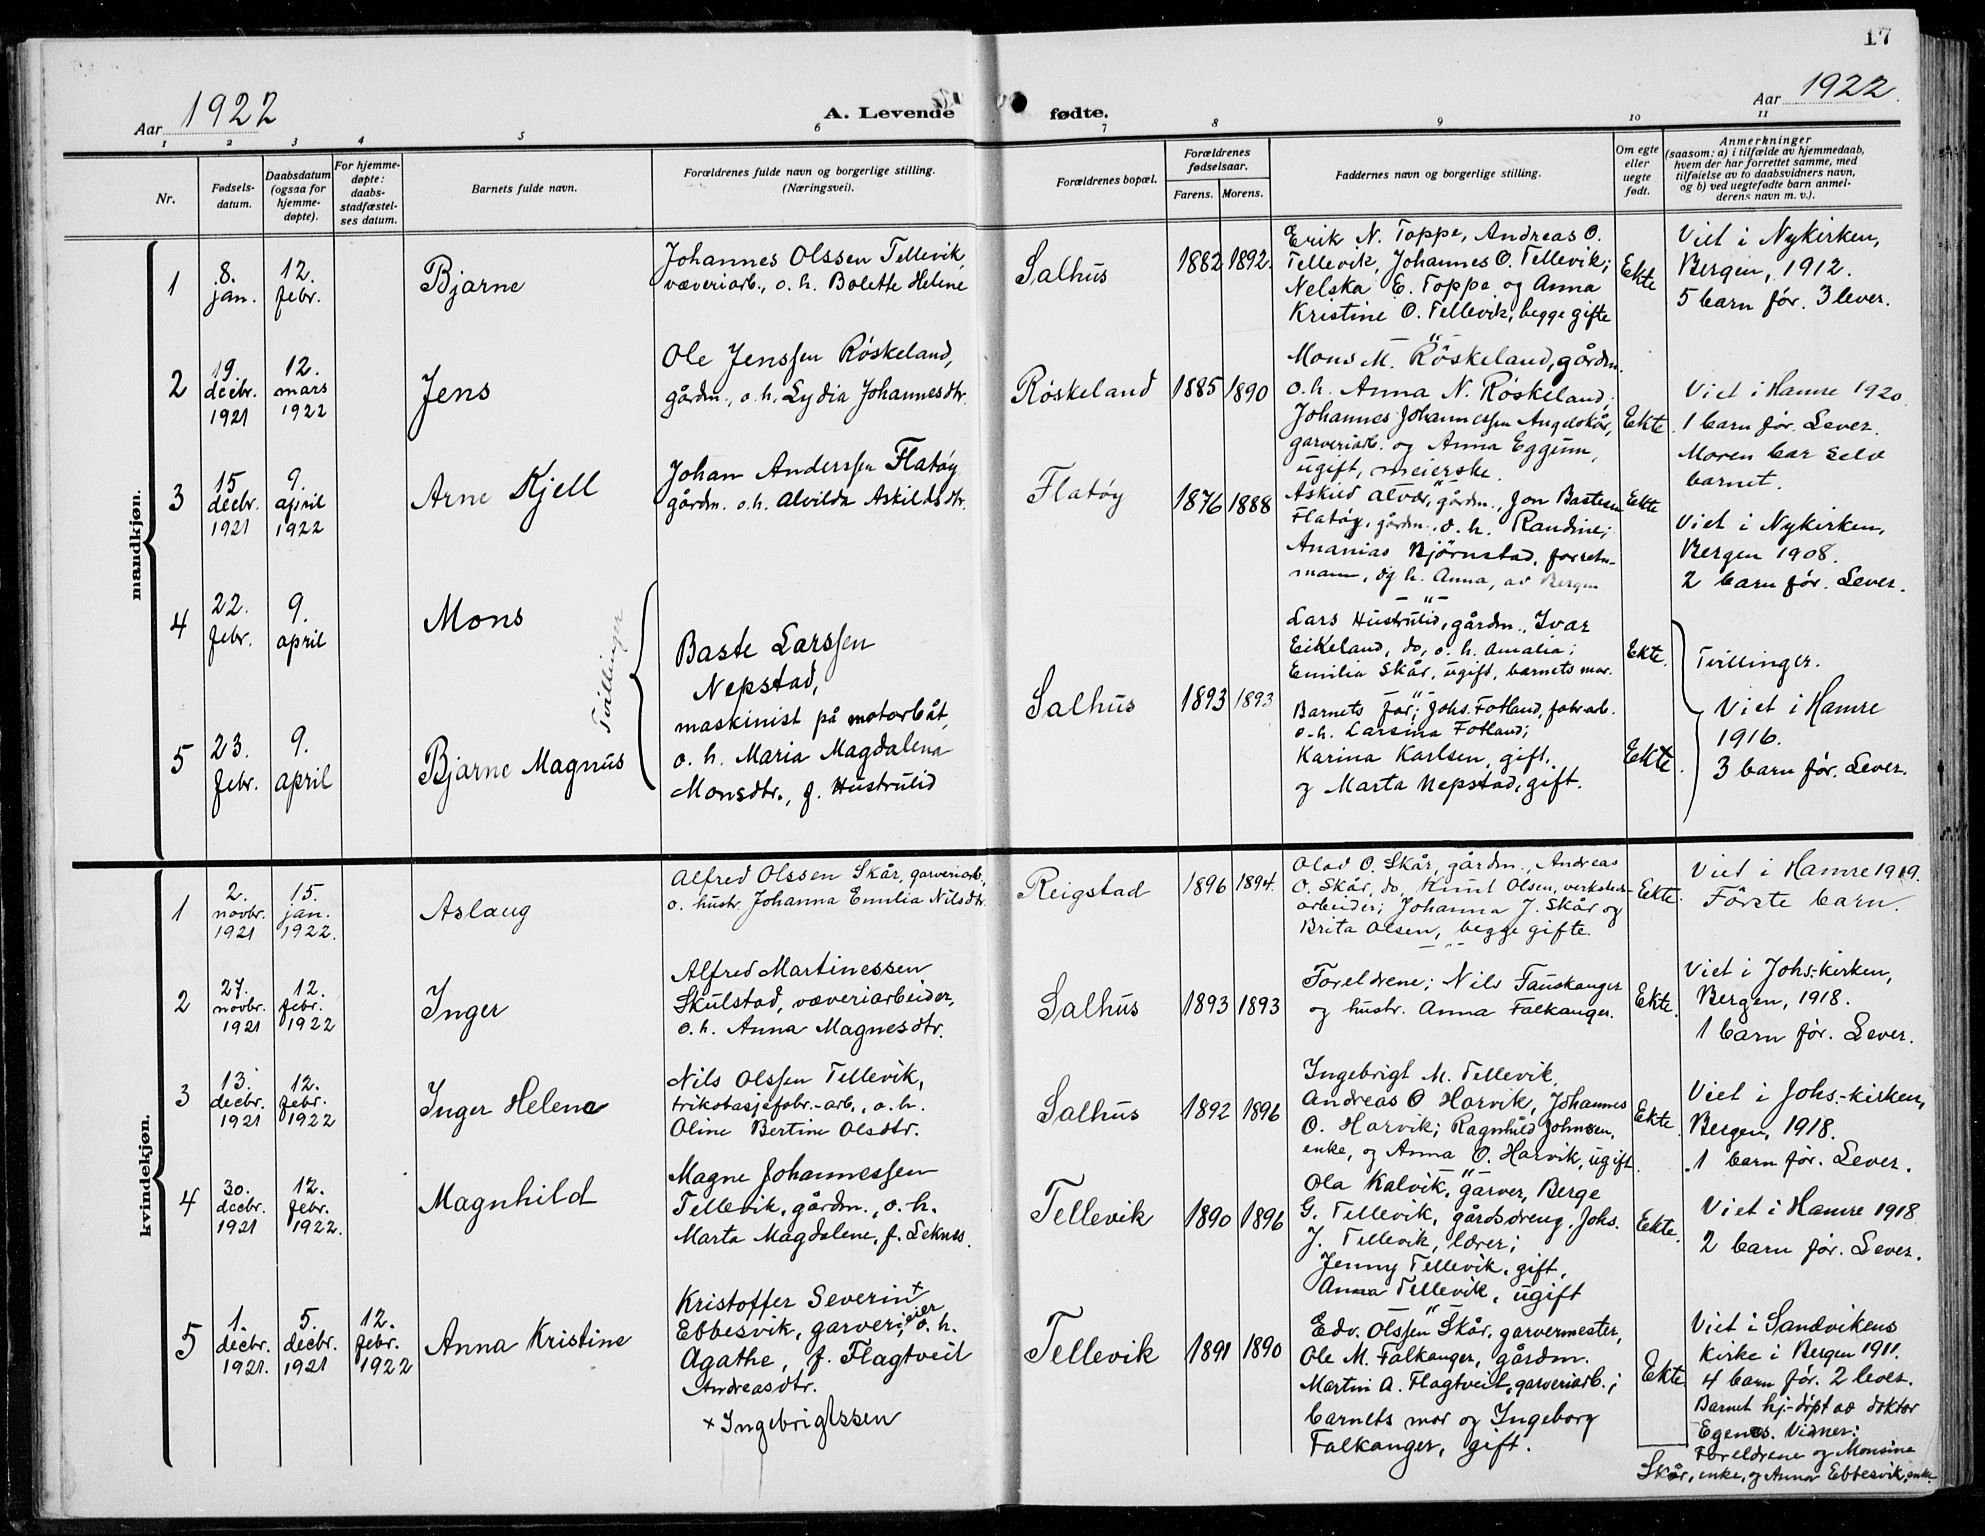 17
Aar 1922
A. Levende fødte.
Aar 1922.
1 2 3 4 5 6 7 8 9 10 11
Nr.
Fødsels-
datum.
Daabsdatum
(ogsaa for
hjemme-
døpte).
For hjemme-
døpte:
daabs-
stadfæstel-
ses datum.
Barnets fulde navn.
Forældrenes fulde navn og borgerlige stilling.
(Næringsvei).
Forældrenes bopæl.
Forældrenes
fødselsaar.
Farens. Morens.
Faddernes navn og borgerlige stilling.
Om egte
eller
uegte
født.
Anmerkninger
(saasom: a) i tilfælde av hjemmedaab,
hvem der har forrettet samme, med
tilføielse av to daabsvidners navn,
og b) ved uegtefødte barn anmel-
derens navn m. v.).
mandkjøn.
1
8.
jan.
12.
febr.
Bjarne
Johannes Olssen Tellevik,
væveriarb., o. h. Bolette Helene
Salhus
1882 1892.
Erik N. Toppe, Andreas O.
Tellevik, Johannes O. Tellevik;
Nelska E. Toppe og Anna
Kristine O. Tellevik, begge gifte
Ekte
Viet i Nykirken,
Bergen, 1912.
5 barn før. 3 lever.
2
19.
decbr.
1921
12.
mars
1922
Jens
Ole Jenssen Røskeland,
gårdm., o. h. Lydia Johannesdtr.
Røskeland
1885 1890
Mons M. Røskeland, gårdm.
o. h. Anna N. Røskeland;
Johannes Johannessen Angelskår,
garveriarb. og Anna Eggum,
ugift, meierske.
Ekte.
Viet i Hamre 1920.
1 barn før. Lever.
Moren bar selv
barnet.
3
15
decbr.
1921
9.
april
1922
Arne Kjell
Johan Anderssen Flatøy
gårdm. o. h. Alvilda Askildsdtr.
Flatøy
1876 1888
Askild Alver, gårdm., Jon Bastesen
Flatøy, gårdm., o. h. Randine;
Ananias Bjørnstad, forretn-
mann, og h. Anna, av Bergen
Ekte
Viet i Nykirken,
Bergen 1908.
2 barn før. Lever.
4
22.
febr.
9.
april
Mons
Tvillinger
Baste Larssen
Nepstad,
maskinist på motorbåt,
o. h. Maria Magdalena
Monsdtr., f. Hustrulid
Salhus
1893 1893
Lars Hustrulid, gårdm., Ivar
Eikeland, do, o. h. Amalia;
Emilia Skår, ugift, barnets mor.
Ekte.
Tvillinger.
Viet i Hamre
1916.
3 barn før. Lever.
5
23.
febr.
9.
april
Bjarne Magnus
Barnets far; Johs. Fotland, fabr.arb.
o. h. Larsina Fotland;
Karina Karlsen, gift,
og Marta Nepstad, gift.
Ekte.
kvindekjøn.
1
2.
novbr.
1921
15.
jan.
1922.
Aslaug
Alfred Olssen Skår, garveriarb.,
o. hustr. Johanna Emilia Nilsdtr.
Reigstad
1896 1894.
Olav O. Skår, gårdm., Andreas
O. Skår, do, Knut Olsen, verksteds-
arbeider; Johanna J. Skår og
Brita Olsen, begge gifte.
Ekte.
Viet i Hamre 1919.
Første barn.
2
27.
novbr.
1921
12.
febr.
1922
Inger
Alfred Martinessen
Skulstad, væveriarbeider,
o. h. Anna Magnesdtr.
Salhus
1893 1893
Foreldrene; Nils Fauskanger
og hustr. Anna Falkanger.
Ekte.
Viet i Johs.-kirken,
Bergen, 1918.
1 barn før. Lever.
3
13.
decbr.
1921
12.
febr.
1922
Inger Helene
Nils Olssen Tellevik,
trikotasjefabr.-arb., o. h.
Oline Bertine Olsdtr.
Salhus
1892 1896
Ingebrigt M. Tellevik,
Andreas O Harvik, Johannes
O. Harvik; Ragnhild Johnsen,
enke, og Anna O. Harvik, ugift.
Ekte.
Viet i Johs.-kirken,
Bergen, 1918.
1 barn før. Lever.
4
30.
decbr.
1921
12.
febr.
1922.
Magnhild
Magne Johannessen
Tellevik, gårdm., o. h.
Marta Magdalene, f. Leknes.
Tellevik
1890 1896
Ola Kalvik, garver, Berge
G. Tellevik, gårdsdreng, Johs.
J. Tellevik, lærer;
Jenny Tellevik, gift,
Anna Tellevik, ugift
Ekte.
Viet i Hamre 1918
2 barn før. Lever.
5
1.
decbr.
1921.
5.
decbr.
1921
12.
febr.
1922
Anna Kristine
Kristoffer Severin +
Ebbesvik, garverieier, o. h.
Agathe, f. Flagtveit
Andreasdtr.
+ Ingebrigtssen
Tellevik
1891 1890
Edv. Olssen Skår, garvermester,
Ole M. Falkanger, gårdm.
Martin A. Flagtveit, garveriarb.;
barnets mor og Ingeborg
Falkanger, gift.
Ekte.
Viet i Sandvikens
kirke i Bergen 1911.
4 barn før. 2 lever.
Barnet hj.-døpt av doktor
Egenes. Vidner:
Foreldrene og Monsine
Skår, enke, og Anna Ebbesvik, enke.